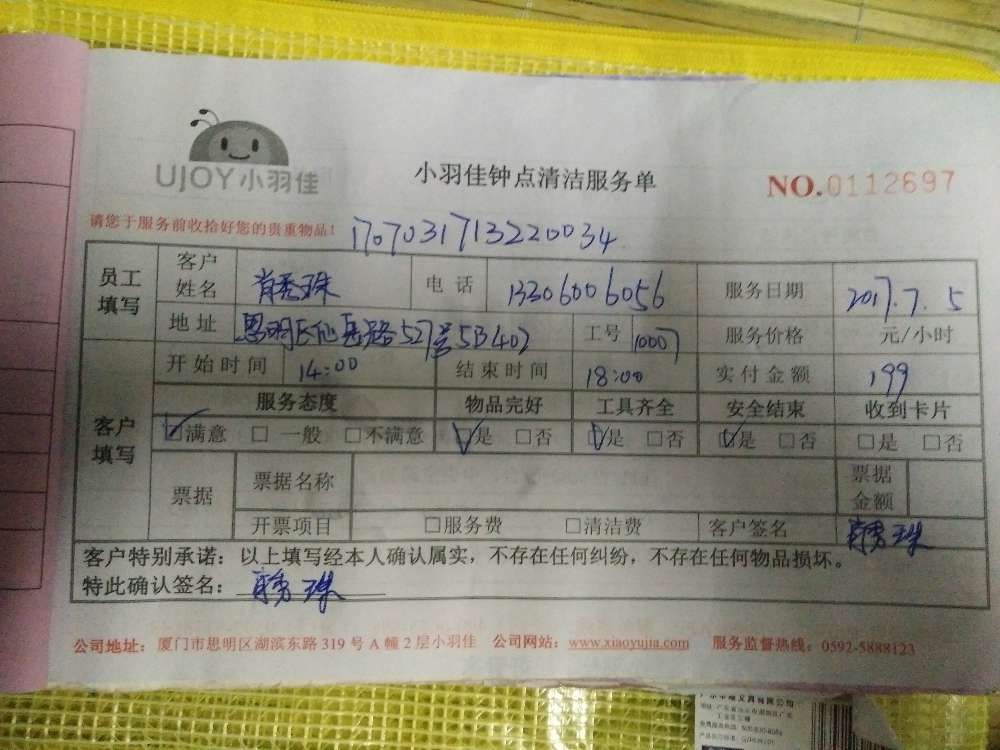 UJOY小羽佳
小羽佳钟点清洁服务单
NO.0112697
请您于服务前收拾好您的贵重物品！ 170703171322003​4
员工填写 客户姓名 肖秀珠 电话 13306006056 服务日期 2017.7.5
地址 思明区仙岳路527号5B402 工号 10007 服务价格 元/小时
客户填写 开始时间 14:00 结束时间 18:00 实付金额 199
服务态度 物品完好 工具齐全 安全结束 收到卡片
☑满意 □一般 □不满意 ☑是 □否 ☑是 □否 ☑是 □否 □是 □否
票据 票据名称 票据金额
开票项目 □服务费 □清洁费 客户签名 肖秀珠
客户特别承诺：以上填写经本人确认属实，不存在任何纠纷，不存在任何物品损坏。
特此确认签名： 肖秀珠
公司地址：厦门市思明区湖滨东路319号A幢2层小羽佳 公司网站：www.xiaoyujia.com 服务监督热线：0592-5888123